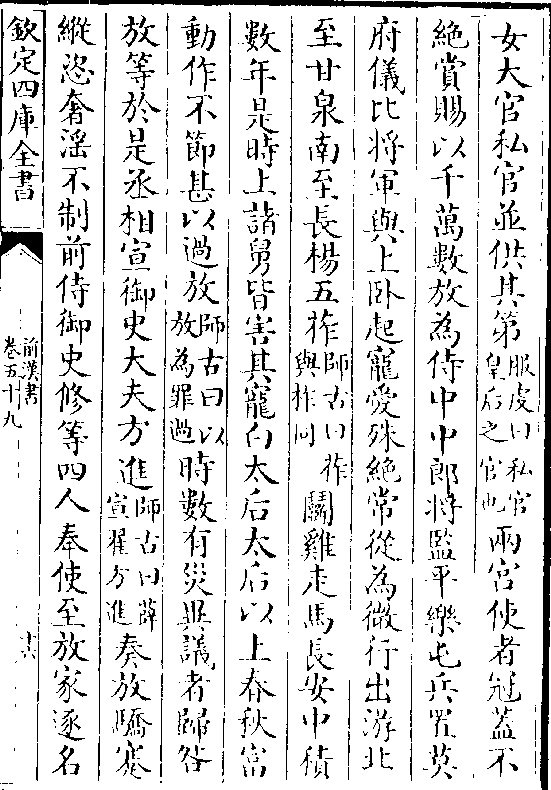 女大官私官並供其第服䖍曰私官皇后之官也兩宫使者冠蓋不
絶賞賜以千萬數放為侍中中郎將監平樂屯兵置莫
府儀比將軍與上卧起寵愛殊絶常從為微行出游北
至甘泉南至長楊五莋師古曰莋與柞同鬬雞走馬長安中積
數年是時上諸舅皆害其寵白太后太后以上春秋富
動作不節甚以過放師古曰以放為罪過時數有災異議者歸咎
放等於是丞相宣御史大夫方進師古曰薛宣翟方進奏放驕蹇
縱恣奢淫不制前侍御史修等四人奉使至放家逐名
欽定四庫全書
前漢書
卷五十九
十六